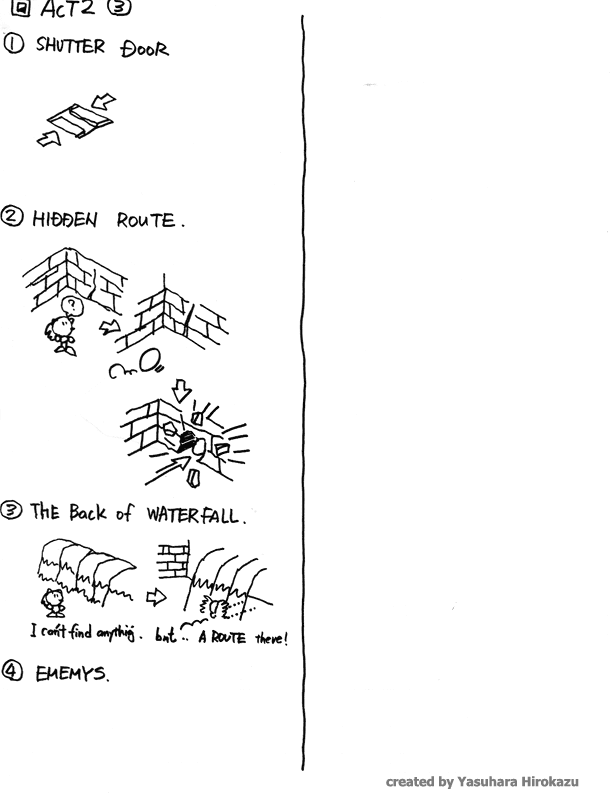 回 ACT2 ③
① SHUTTER DOOR
② HIDDEN ROUTE.
?
③ THE Back of WATERFALL.
I can't find anything. but.. A ROUTE there!
④ EMEMYS.
created by Yasuhara Hirokazu